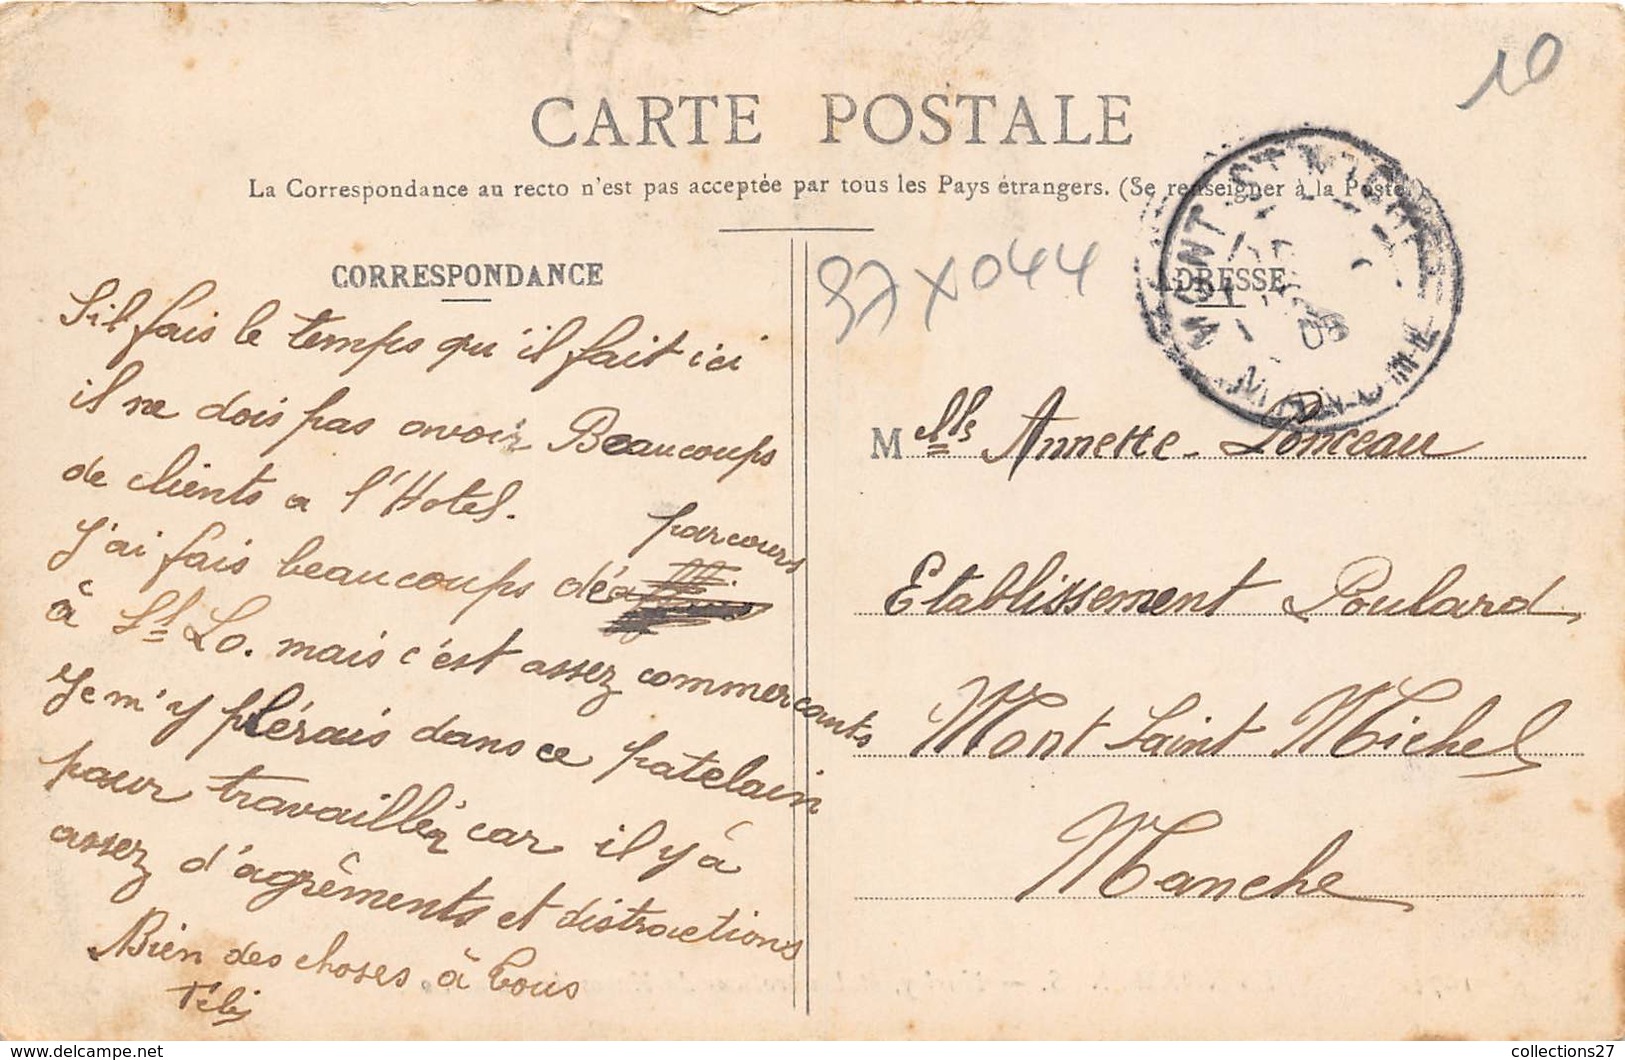 10
CARTE POSTALE
La Correspondance au recto n'est pas acceptée par tous les Pays étrangers. (Se renseigner à la Poste)
CORRESPONDANCE
S'il fais le temps qu'il fait ici
il ne dois pas avoir Beaucoups
de clients a l'Hotel.
parcours
J'ai fais beaucoups de
à St Lo. mais c'est assez commercants
Je m'y plérais dans ce patelain
pour travailler car il y à
assez d'agréments et distractions
Bien des choses à tous
37 X 044
ADRESSE
MONT ST MICHEL
08
MANCHE
Melle Annette Ponceau
Etablissement Poulard
Mont Saint Michel
Manche
collections27